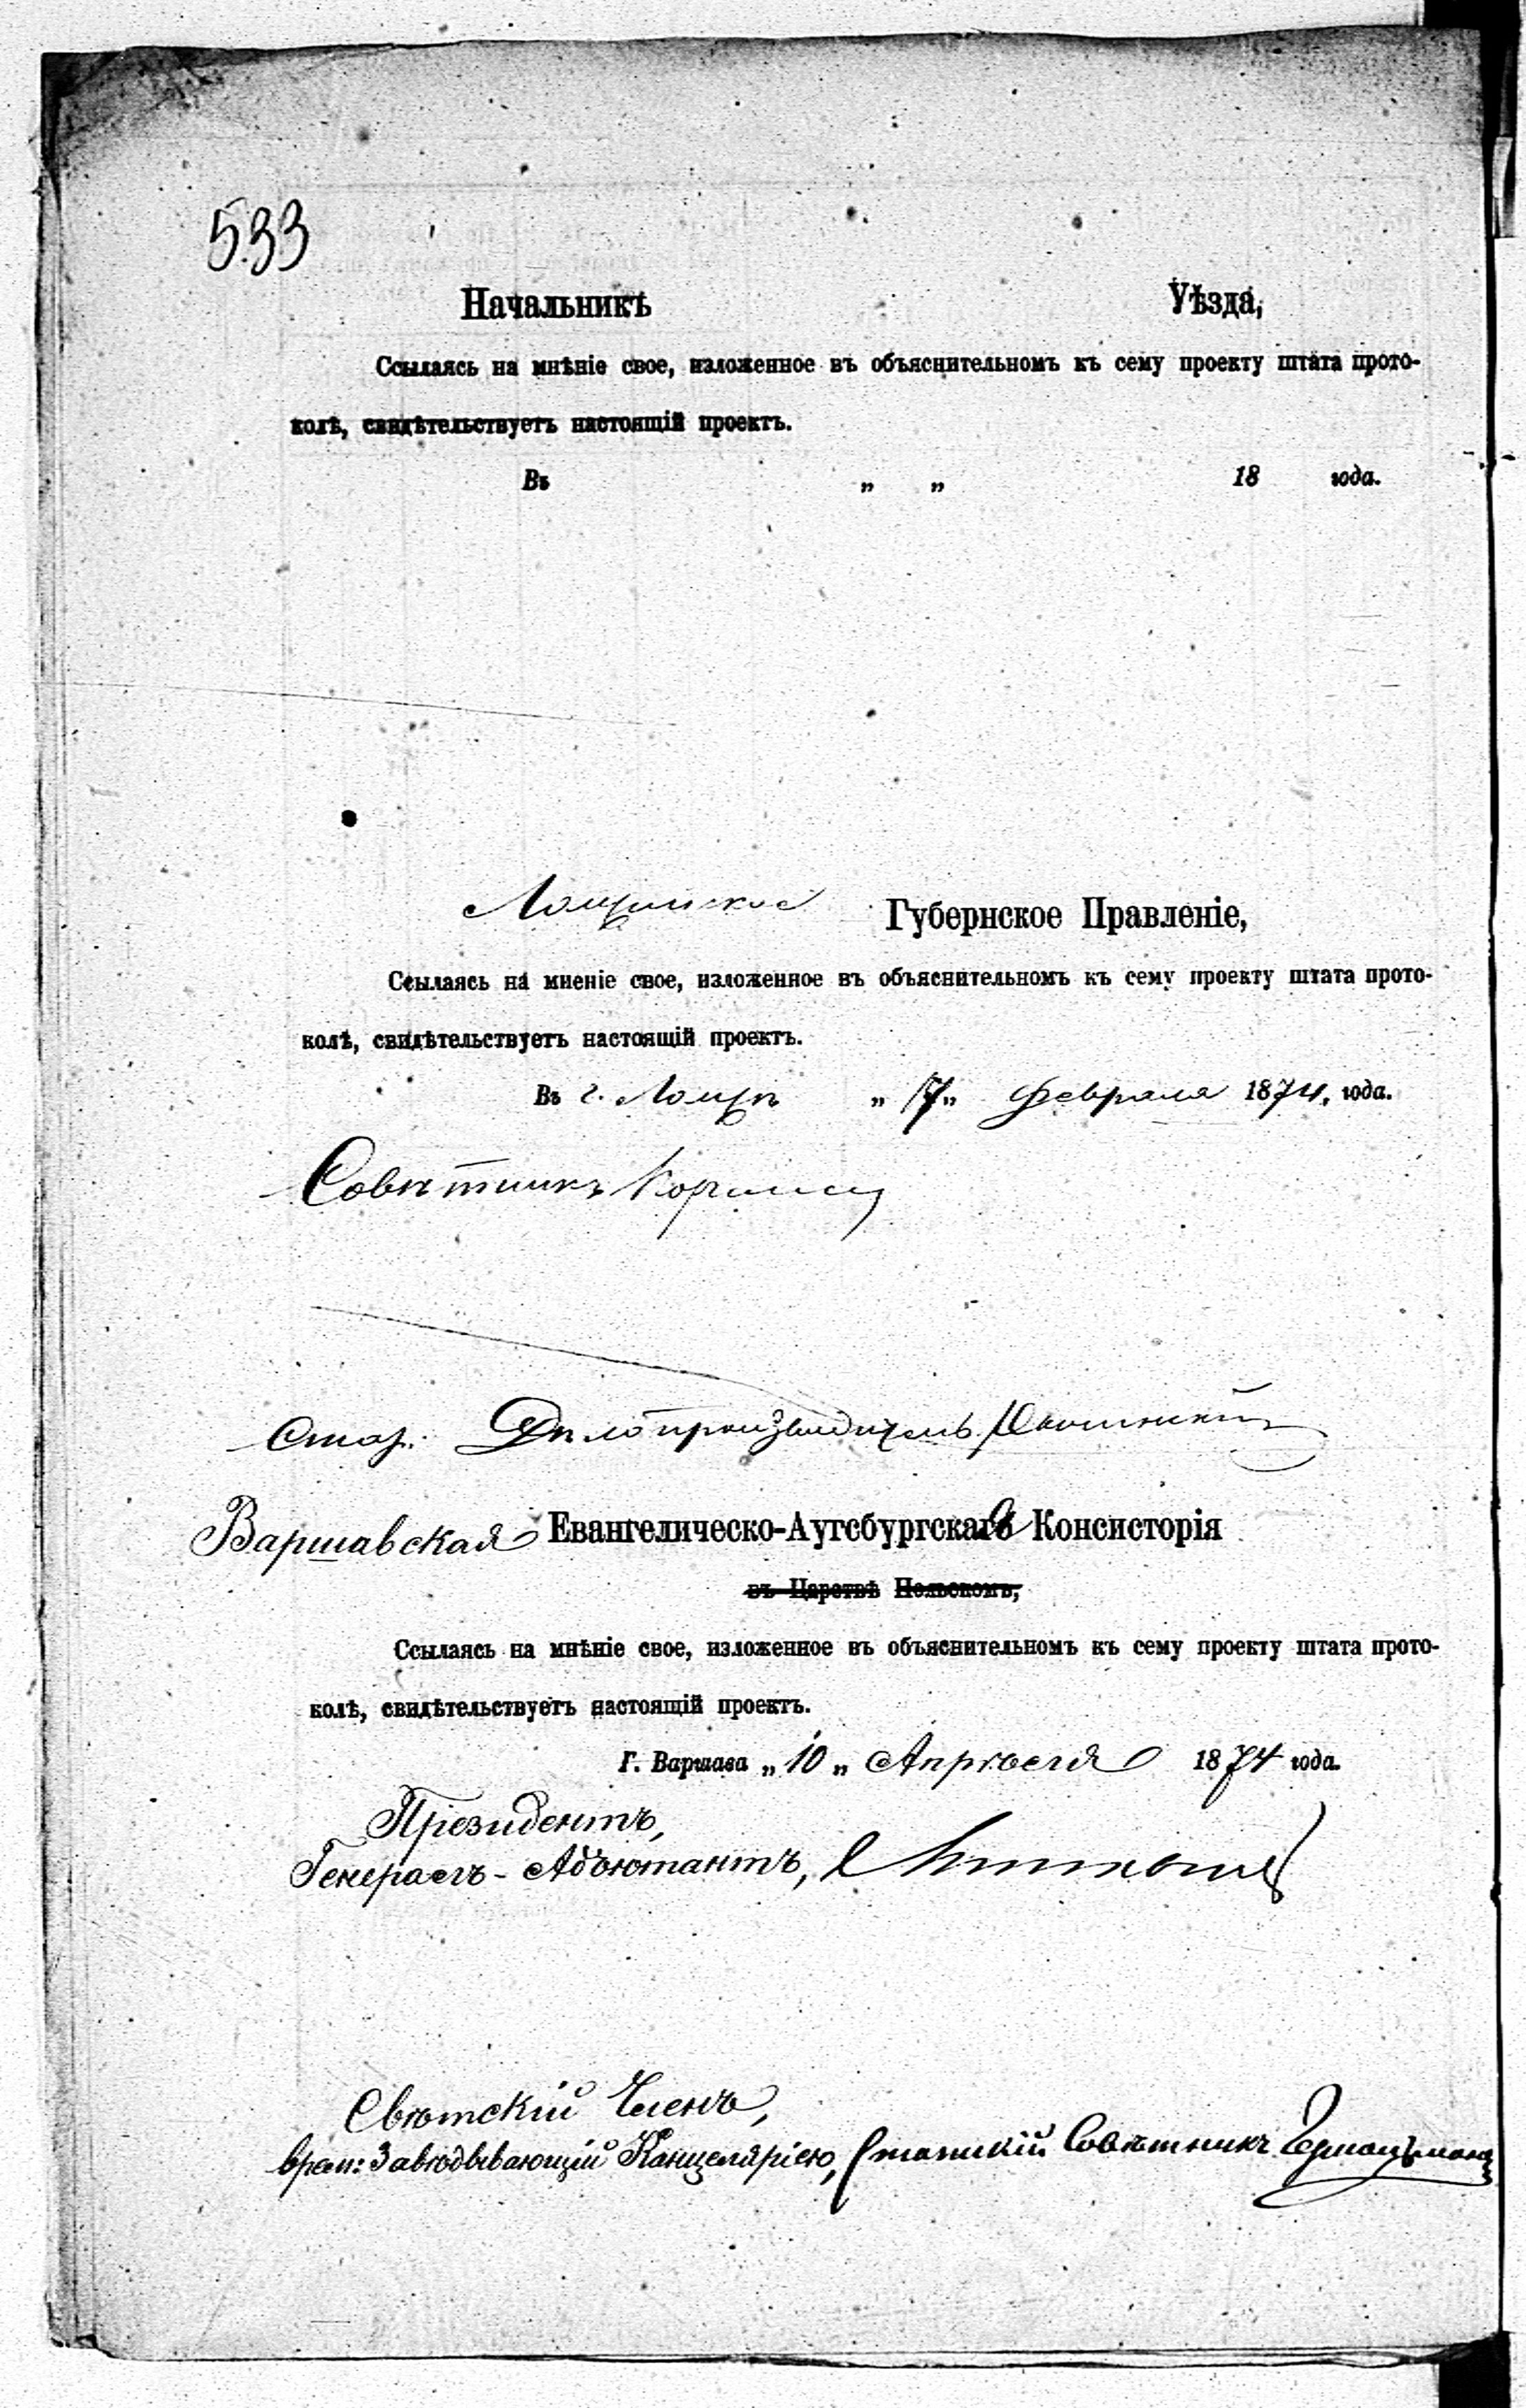 533
Начальникъ Уѣзда,
Ссылаясь на мнѣніе свое, изложенное въ объяснительномъ къ сему проекту штата прото-
колѣ, свидѣтельствуетъ настоящій проектъ.
Въ „ „ 18 года.
Ломжинское Губернское Правленіе,
Ссылаясь на мненіе свое, изложенное въ объяснительномъ къ сему проекту штата прото-
колѣ, свидѣтельствуетъ настоящій проектъ.
Въ г. Ломжѣ „ 17 „ Февраля 1874, года.
Совѣтникъ
Стар. Дѣлопроизводитель
Варшавская Евангелическо-Аугсбургская Консисторія
въ Царствѣ Польскомъ,
Ссылаясь на мнѣніе свое, изложенное въ объяснительномъ къ сему проекту штата прото-
колѣ, свидѣтельствуетъ настоящій проектъ.
Г. Варшава „ 10 „ Апрѣля 1874 года.
Президентъ,
Генералъ-Адъютантъ,
Свѣтскій Членъ,
врем: Завѣдывающій Канцеляріею, Статскій Совѣтникъ